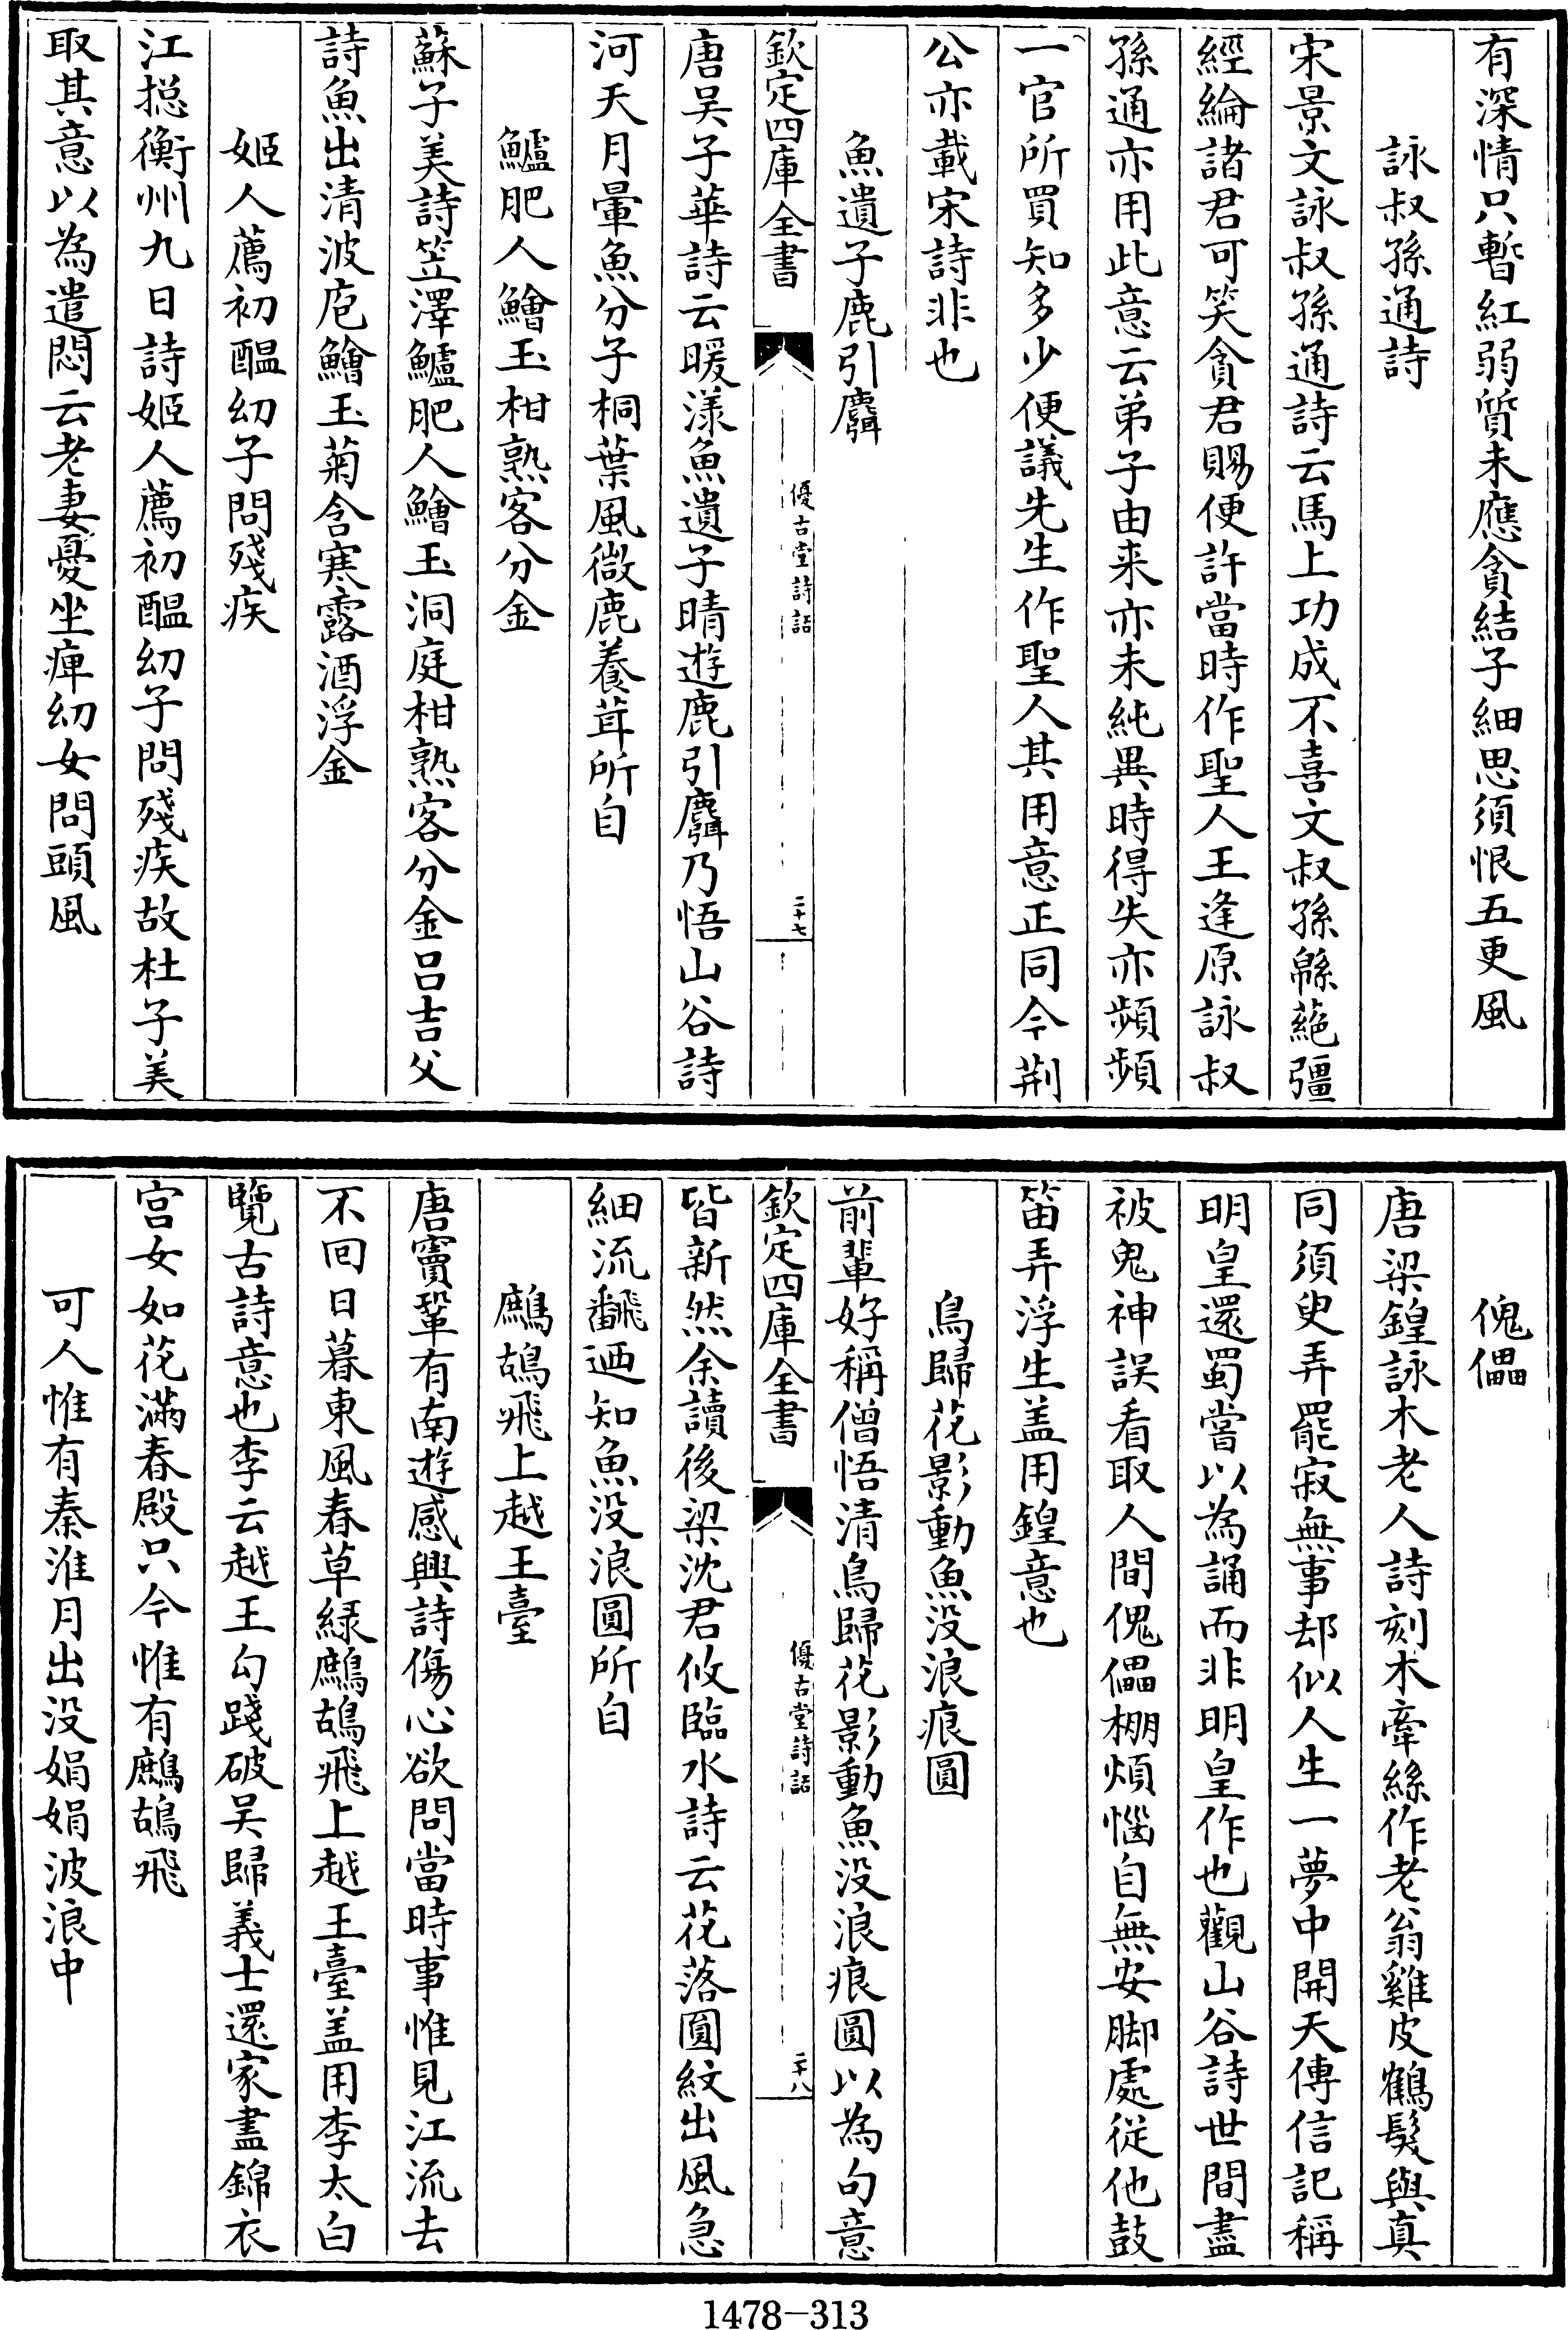 有深情只暫紅弱質未應貪結子細思須恨五更風
詠叔孫通詩
宋景文詠叔孫通詩云馬上功成不喜文叔孫緜蕝彊
經綸諸君可笑貪君賜便許當時作聖人王逢原詠叔
孫通亦用此意云弟子由来亦未純異時得失亦頻頻
一官所買知多少便議先生作聖人其用意正同今荆
公亦載宋詩非也
魚遺子鹿引麛
欽定四庫全書
優古堂詩話
二十七
唐吴子華詩云暖漾魚遺子晴遊鹿引麛乃悟山谷詩
河天月暈魚分子桐葉風微鹿養茸所自
鱸肥人鱠玉柑熟客分金
蘇子美詩笠澤鱸肥人鱠玉洞庭柑熟客分金吕吉父
詩魚出清波庖鱠玉菊含寒露酒浮金
姬人薦初醖幼子問殘疾
江揔衡州九日詩姬人薦初醖幼子問殘疾故杜子美
取其意以為遣悶云老妻憂坐痺幼女問頭風
傀儡
唐梁鍠詠木老人詩刻木牽絲作老翁雞皮鶴髮與真
同須臾弄罷寂無事却似人生一夢中開天傳信記稱
明皇還蜀嘗以為誦而非明皇作也觀山谷詩世間盡
被鬼神誤看取人間傀儡棚煩惱自無安脚處從他鼓
笛弄浮生盖用鍠意也
鳥歸花影動魚没浪痕圓
前輩好稱僧悟清鳥歸花影動魚没浪痕圓以為句意
欽定四庫全書
優古堂詩話
二十八
皆新然余讀後梁沈君攸臨水詩云花落圓紋出風急
細流飜迺知魚没浪圓所自
鷓鴣飛上越王臺
唐竇鞏有南遊感興詩傷心欲問當時事惟見江流去
不回日暮東風春草緑鷓鴣飛上越王臺盖用李太白
覽古詩意也李云越王勾踐破吴歸義士還家盡錦衣
宫女如花滿春殿只今惟有鷓鴣飛
可人惟有秦淮月出没娟娟波浪中
1478-313